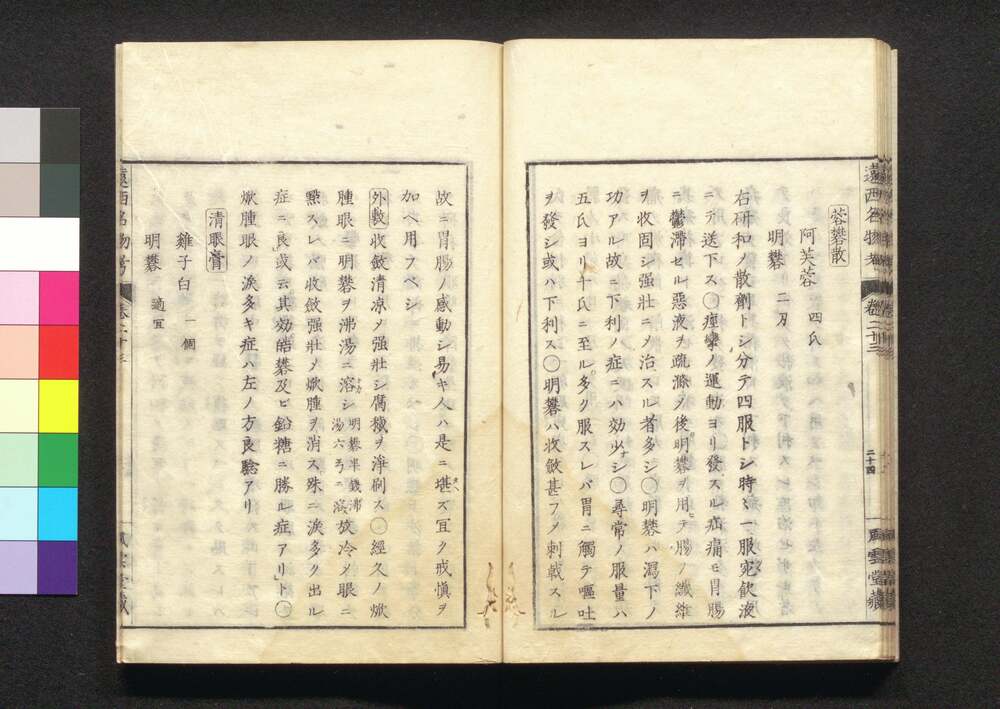 遠西名物考
卷二十三
二十四
蓉礬散
阿芙蓉 四氏
明礬 二刃
右研和ノ散劑トシ分テ四服トシ時〻一服宛飲液
ニテ送下ス○痙攣ノ運動ヨリ發スル疝痛モ胃腸
ニ鬱滯セル惡液ヲ疏滌ノ後明礬ヲ用テ腸ノ纖維
ヲ收固シ强壯ニノ治スル者多シ○明礬ハ瀉下ノ
功アル故ニ下利ノ症ニハ効少シ○尋常ノ服量ハ
五氏ヨリ十氏ニ至ル多ク服スレバ胃ニ觸テ嘔吐
ヲ發シ或ハ下利ス○明礬ハ收斂甚フノ刺戟スル
故ニ胃腸ノ感動シ易キ人ハ是ニ堪ズ宜ク戒愼ヲ
加ヘ用フベシ
外敷收斂清凉ノ强壯シ腐穢ヲ淨刷ス○經久ノ焮
腫眼ニ明礬ヲ沸湯ニ溶シ明礬半錢沸湯六弓ニ溶放冷メ眼ニ
㸃スレバ收斂强壯ノ焮腫ヲ消ス殊ニ淚多ク出ル
症ニ良或云其効皓礬及ビ鉛糖ニ勝ル症アリト○
焮腫眼ノ淚多キ症ハ左ノ方良驗アリ
清眼膏
雞子白 一個
明礬 適宜
遠西名物考
卷二十三